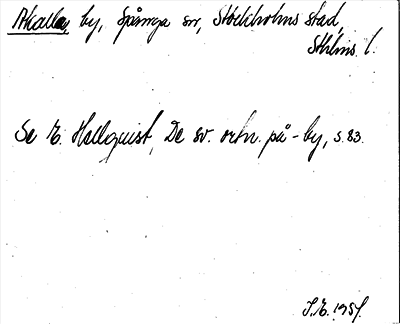 Akalla, by, Spånga sn, Stockholms stad,
Sthlms l.
Se E. Hellquist, De sv. ortn. på -by, s. 83.
S.E. 1951.